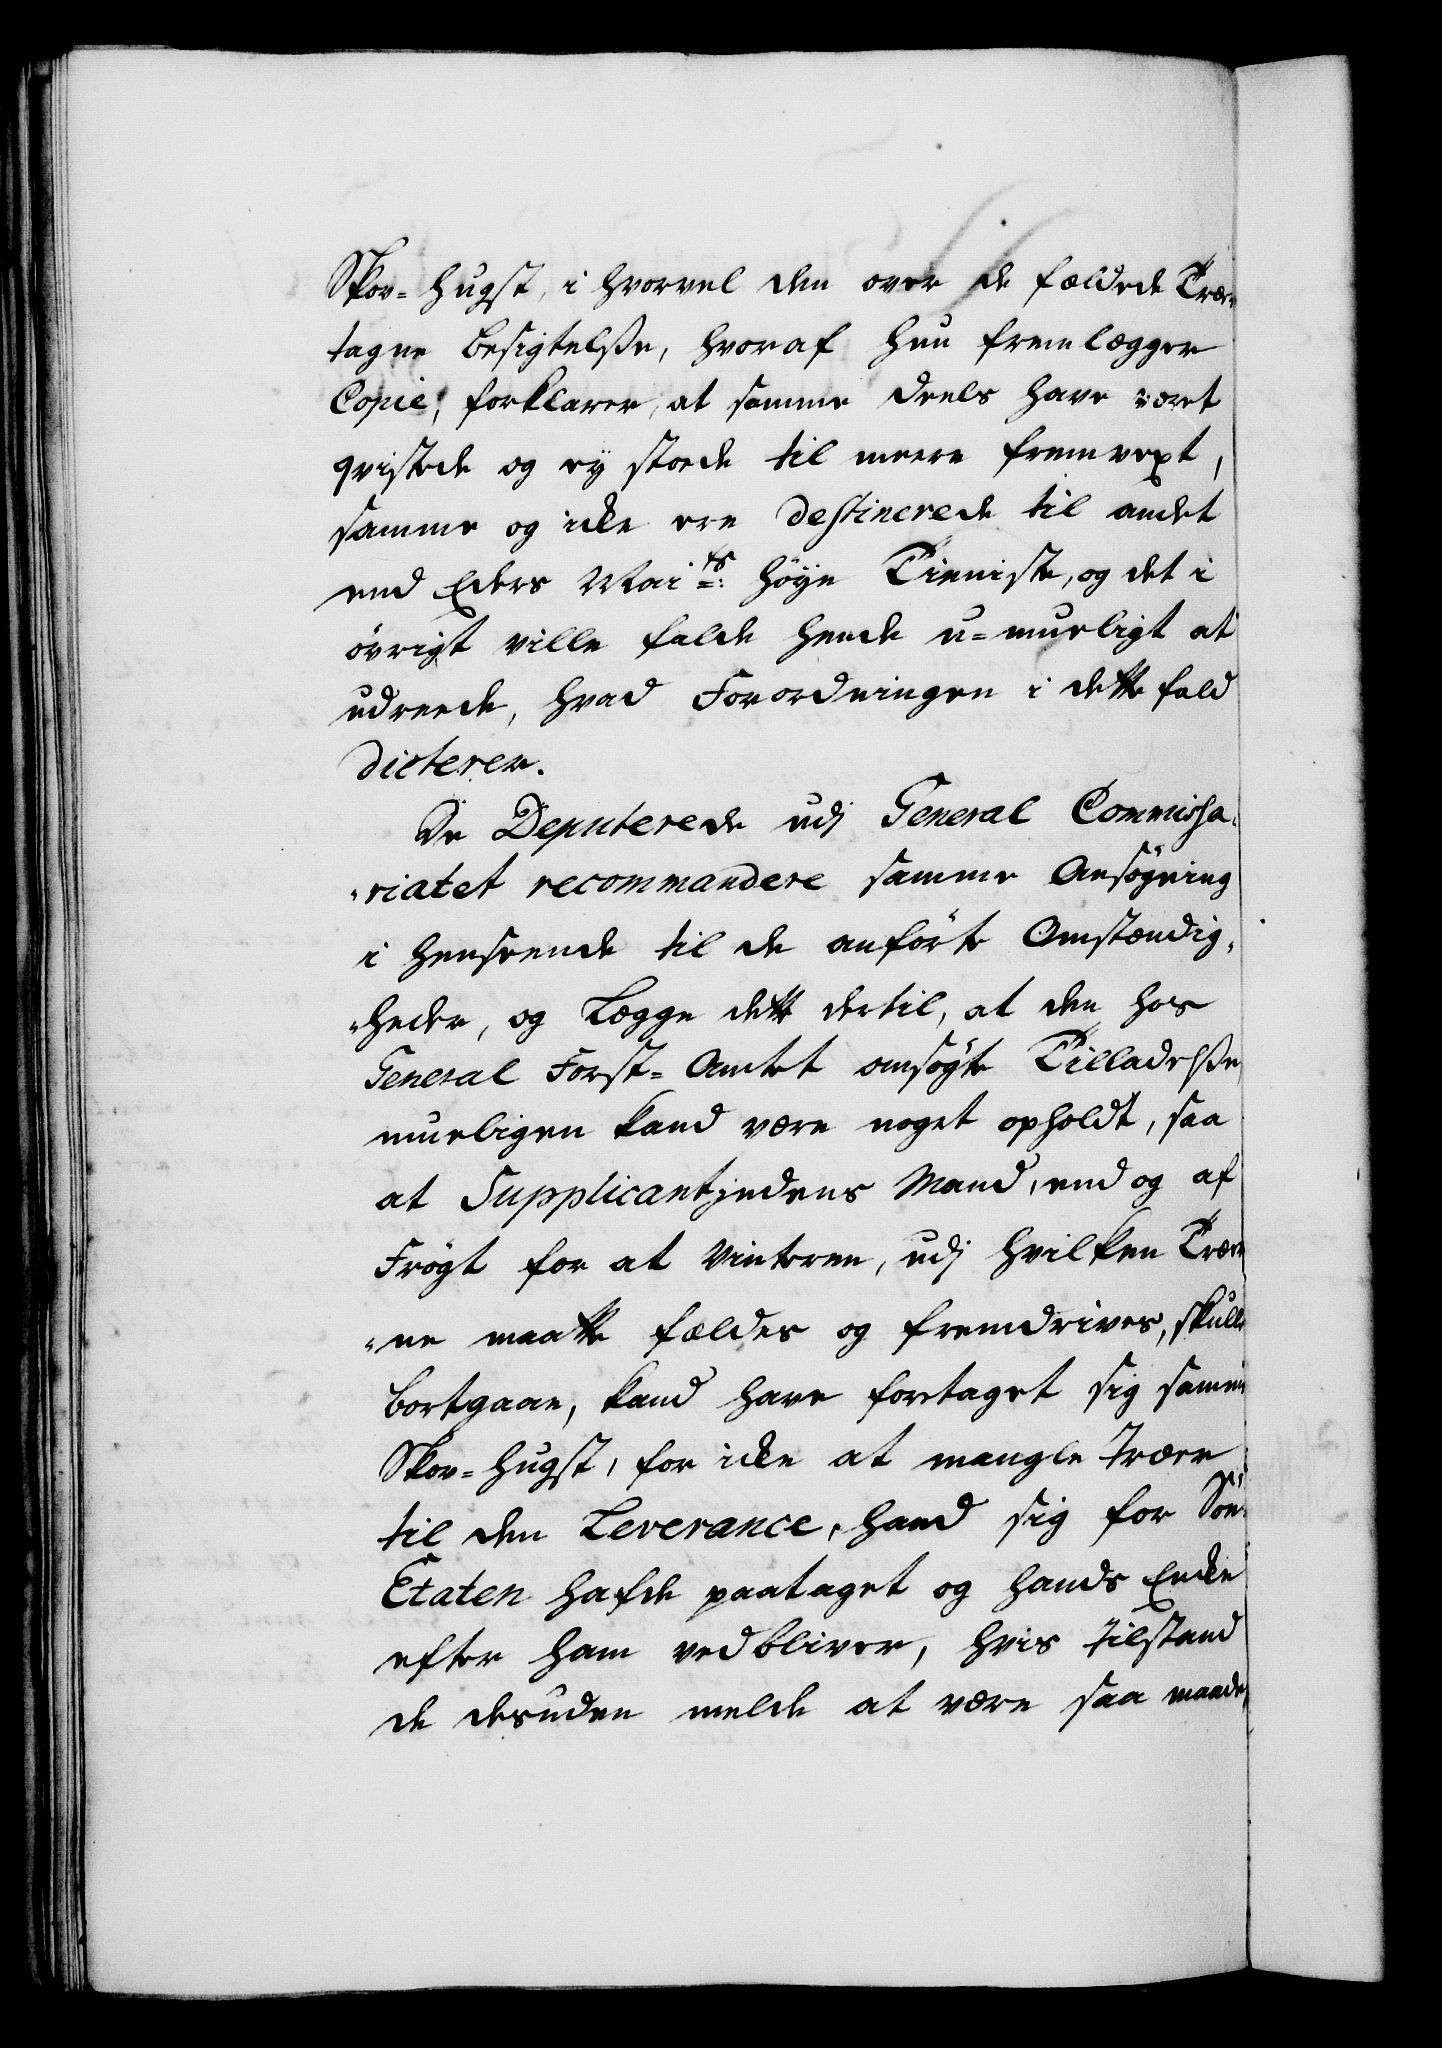 Skov=Hugst, i hvorvel den over de fældede Træer
tagne besigtelsße, hvoraf hun fremlægger
Copie, forklarer, at samme deels have været
qvistede og ey stoede til meere fremvext,
samme og icke ere destinerede til andet
end Eders Mai:ts høye Tienniste, og det i
övrigt ville falde hende u=mueligt at
udreede, hvad Forordningen i dette fald
dicterer.
De Deputerede udj General Commissa-
riatet recommandere samme Ansögning
i henseende til de anförte Omstændig-
heder, og Lægge dette dertil, at den hos
General Forst=Amtet ansögte Tilladelsße
mueligen kand være noget opholdt, saa
at Supplicantjndens Mand, end og af
Frögt for at Vinteren, udj hvilken Træer
ne maatte fældes og fremdrives, skulle
bortgaae, kand have foretaget sig samme
Skov=Hugst, for icke at mangle Træer
til den Leverance, hand sig for Söe-
Etaten hafde paataget og hands Encke
efter ham vedbliver, hvis tilstand
de desuden melde at være saa maade,